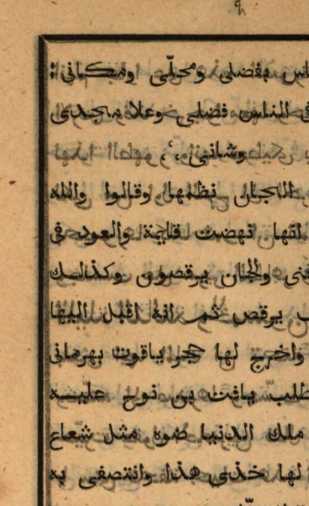 ٩
بفضلى ومحلّى ومكانى
الناس فضلى وعلا مجدى
وشانى
الجان نظمها وقالوا والله
لقها نهضت قايمة والعود فى
والجان يرقصون وكذلك
يرقص ثم انه اقبل اليها
واخرج لها حجر ياقوت بهرمانى
يافت بن نوح عليه
ملك الدنيا ضوه مثل شعاع
لها خذى هذا وانتصفى به